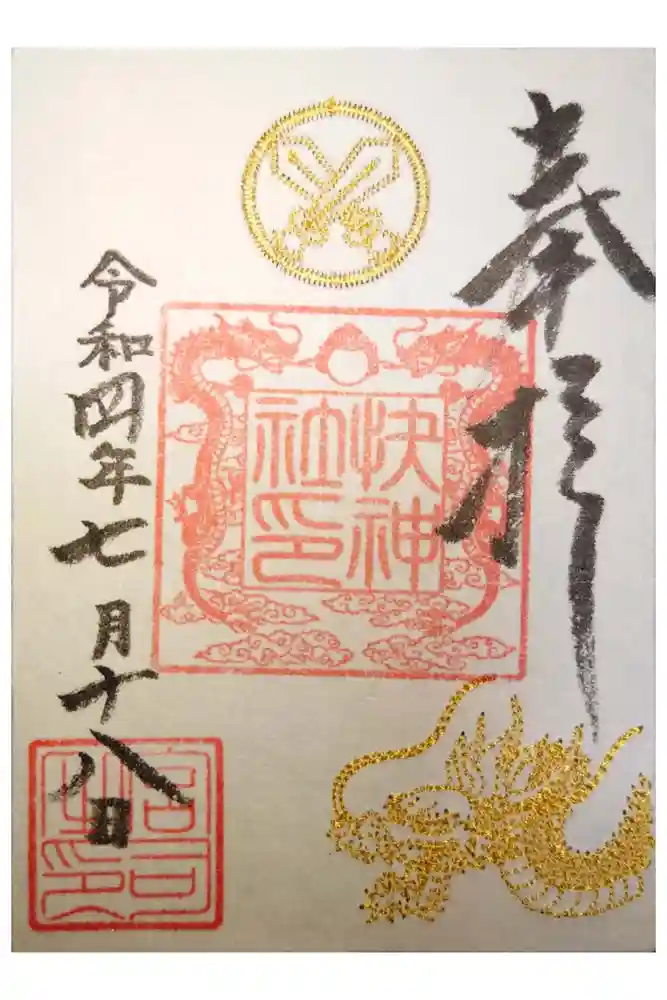 奉拝
快神
社印
令和四年七月十八日
宮司
之印